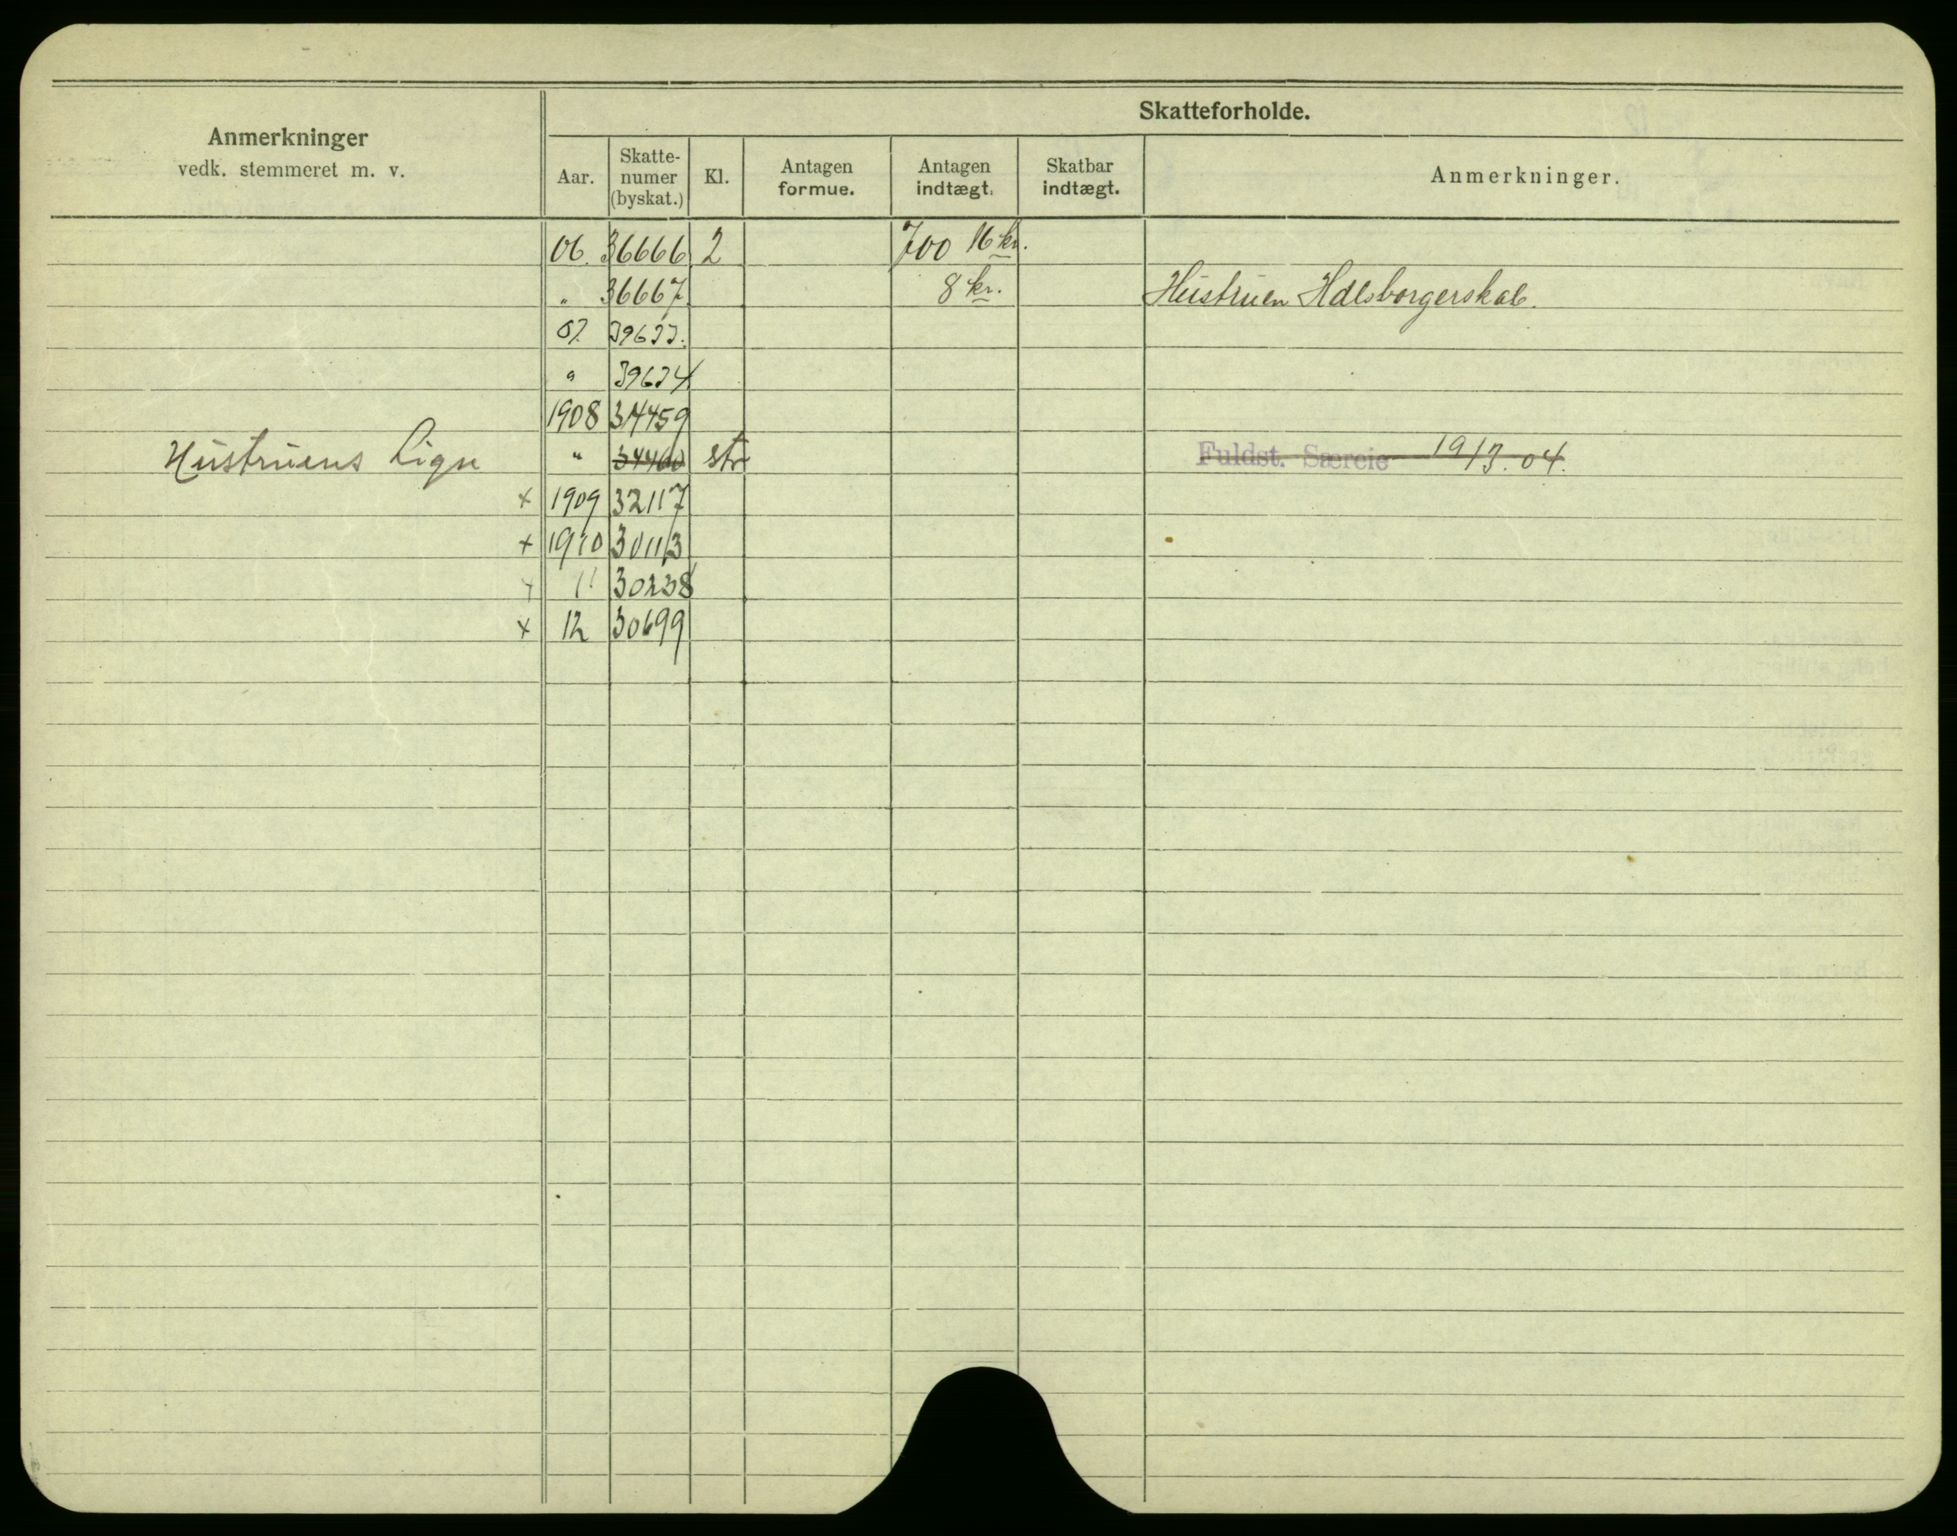 Skatteforholde.
Anmerkninger
vedk. stemmeret m. v.
Aar.
Skatte-
numer
(byskat.)
Kl.
Antagen
formue.
Antagen
indtægt.
Skatbar
indtægt.
Anmerkninger.
06. 36666 2 700 16 kr.
„ 36667 8 kr. Hustruen Hdlsborgerskab.
07. 39633.
„ 39634
1908 34459
Hustruens Lign „ 34460 str Fuldst. Særeie 19/3.04.
x 1909 32117
x 1910 30113
x 11 30238
x 12 30699